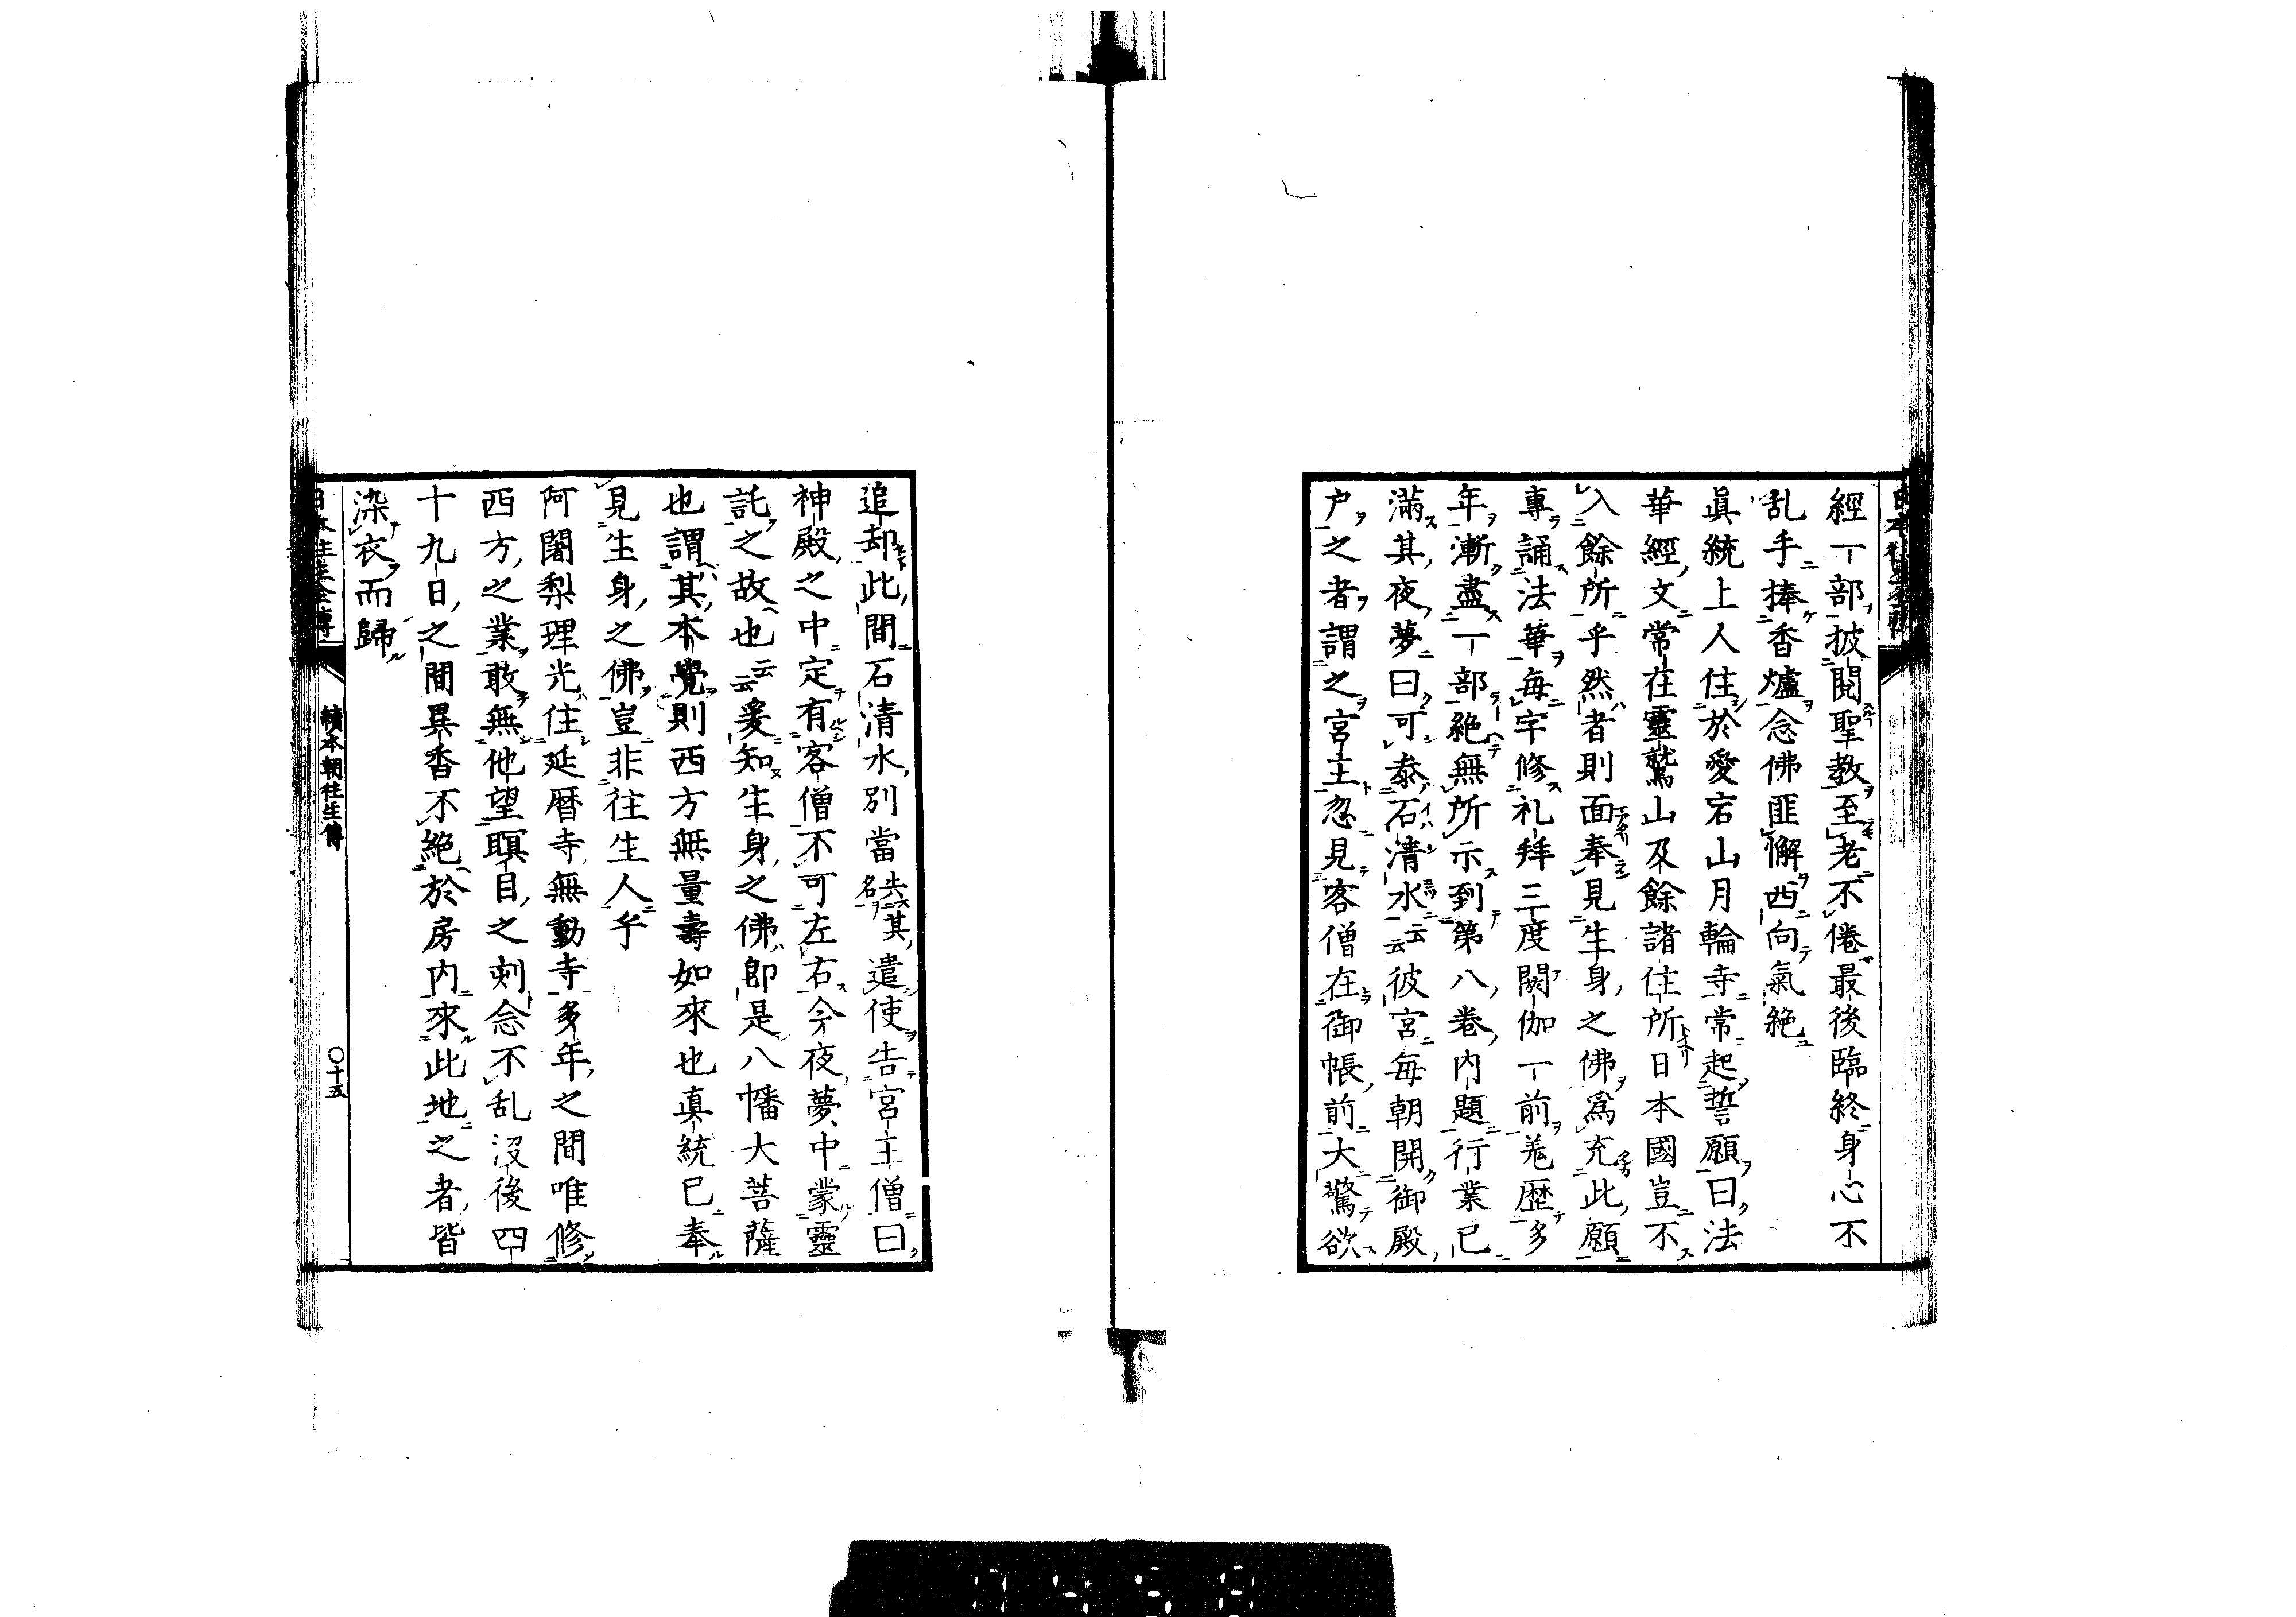 經一部披閲聖教至老不倦最後臨終身心不
乱手捧香爐念佛匪懈西向氣絶
眞統上人住於愛宕山月輪寺常起誓願曰法
華經文常在靈鷲山及餘諸住所日本國豈不
入餘所乎然者則面奉見生身之佛爲充此願
專誦法華毎字修礼拜三度閼伽一前羗歴多
年漸盡一部絶無所示到第八巻内題行業已
滿其夜夢曰可參石清水云云彼宮毎朝開御殿
戸之者謂之宮主忽見客僧在御帳前大驚欲
追却此間石清水別當失其名遣使告宮主僧曰
神殿之中定有客僧不可左右今夜夢中蒙靈
託之故也云云爰知生身之佛即是八幡大菩薩
也謂其本覺則西方無量壽如來也眞統已奉
見生身之佛豈非往生人乎
阿闍梨理光住延暦寺無動寺多年之間唯修
西方之業敢無他望瞑目之刻念不乱没後四
十九日之間異香不絶於房内來此地之者皆
染衣而歸
續本朝往生傳
〇十五